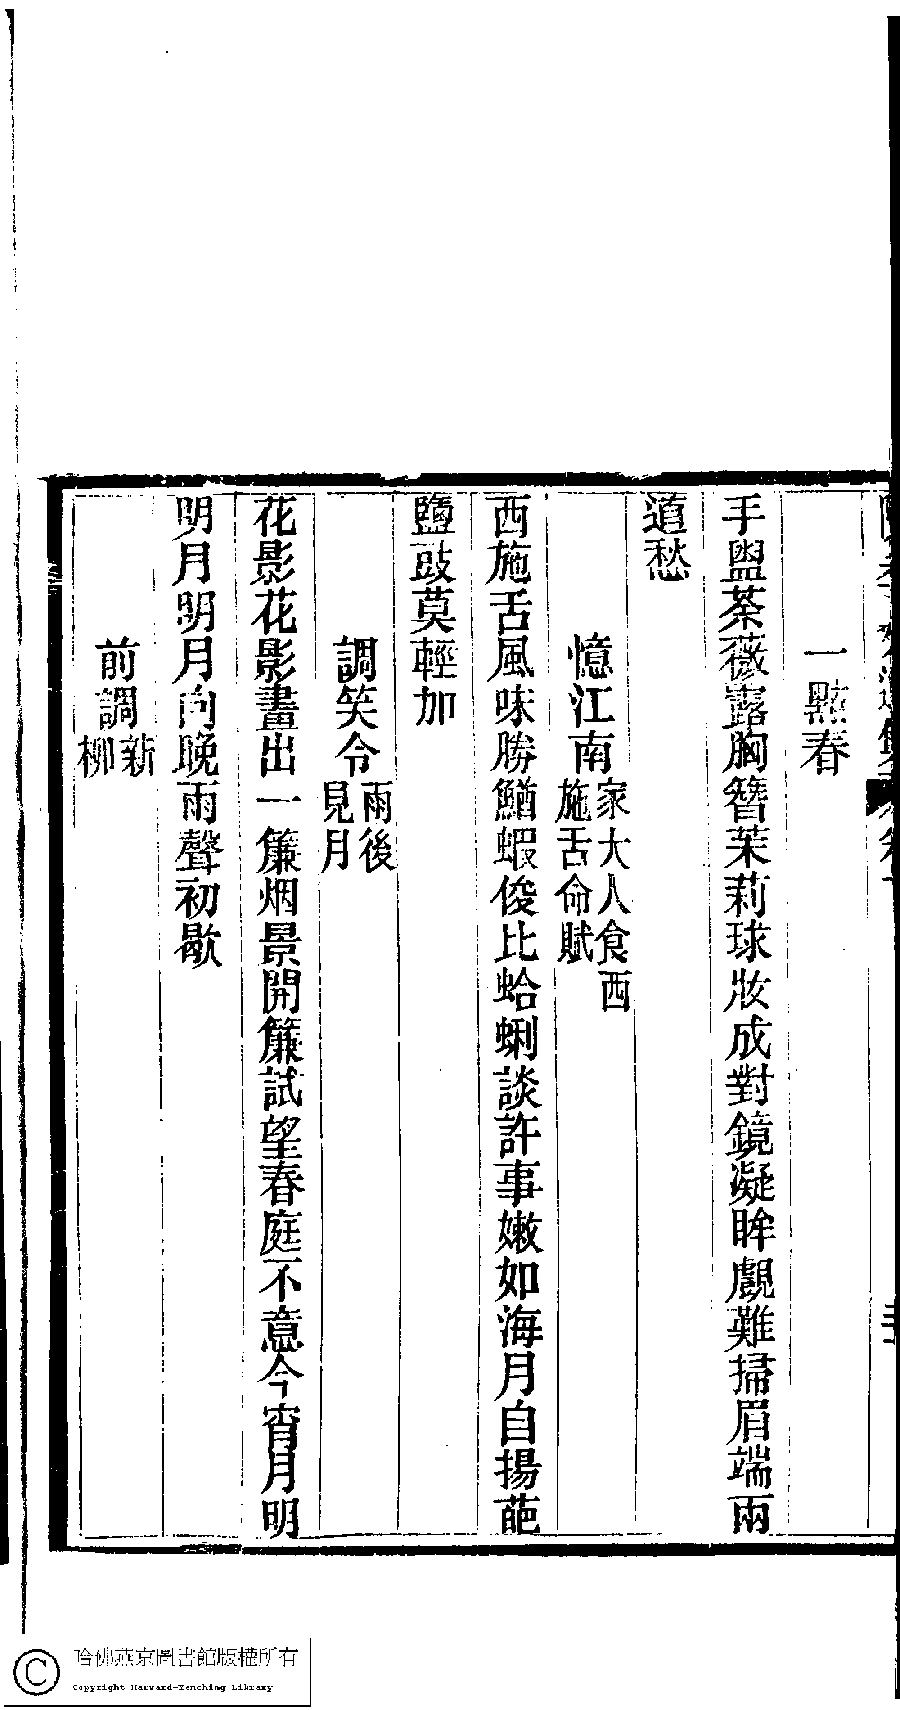 一點春
手盥荼薇露胸簪茉莉球妝成對鏡凝眸覷難掃眉端兩
道愁
憶江南家大人食西施舌命賦
西施舌風味勝鰌蝦俊比蛤蜊談許事嫩如海月自揚葩
鹽豉莫輕加
調笑令雨後見月
花影花影畫出一簾烟景開簾試望春庭不意今宵月明
明月明月向晚雨聲初歇
前調新柳
哈佛燕京圖書館版權所有
Copyright Harvard-Yenching Library